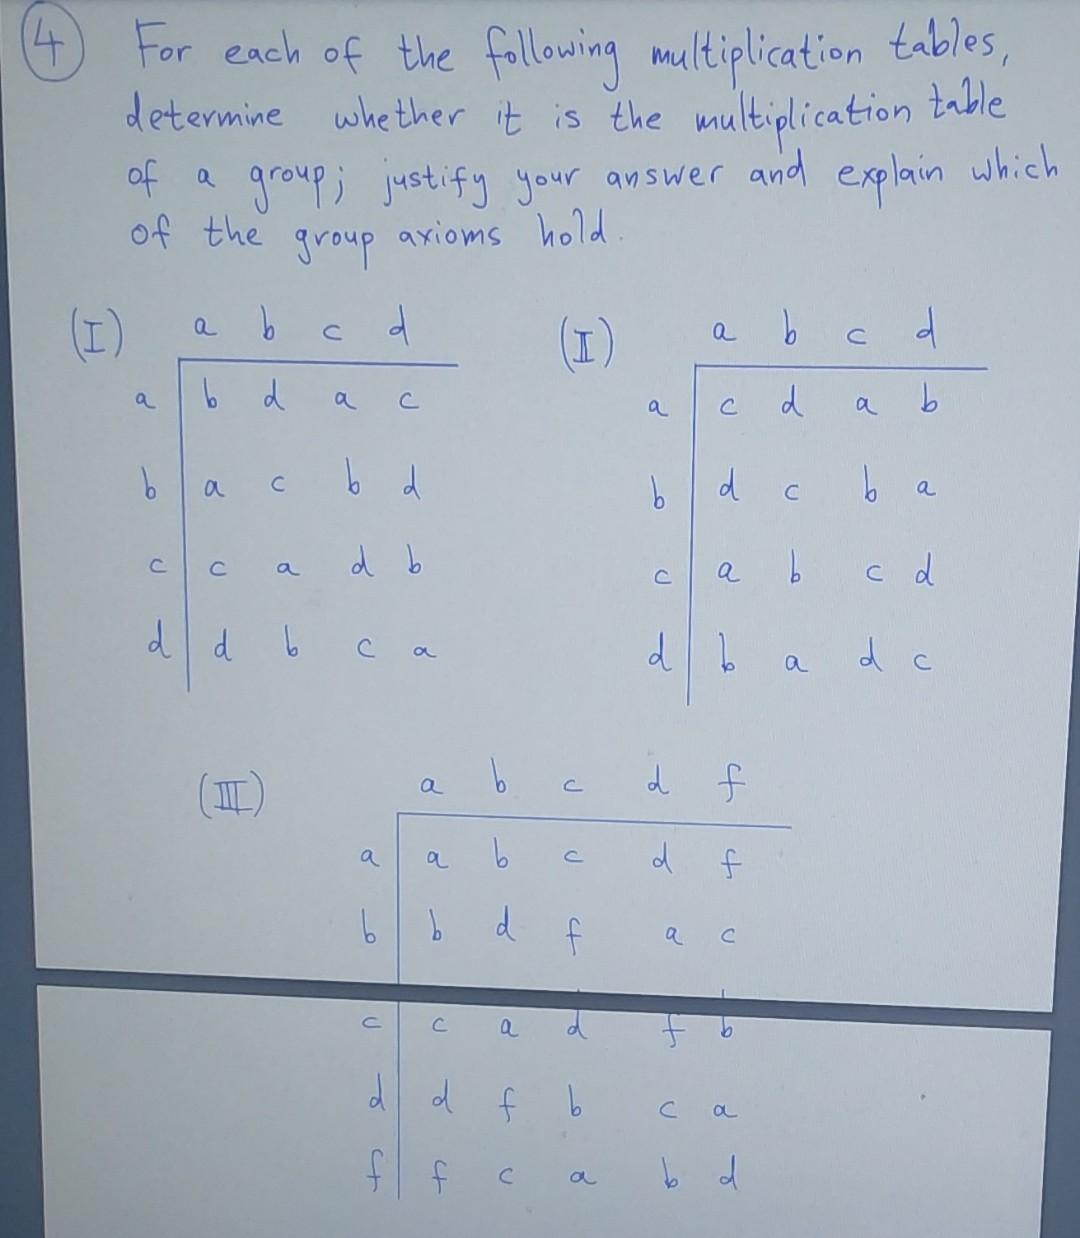 4 For each of the following multiplication tables,
determine whether it is the multiplication table
of a group; justify your answer and explain which
of the group axioms hold.
(I) a b c d
a b d a c
b a c b d
c c a d b
d d b c a
(II) a b c d
a c d a b
b d c b a
c a b c d
d b a d c
(III) a b c d f
a a b c d f
b b d f a c
c c a d f b
d d f b c a
f f c a b d